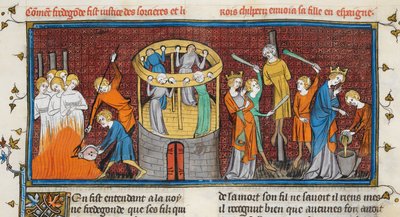 Coment fredegonde fist iustice des sorcieres et li
rois chilperic envoia sa fille en espaigne.
En fist entendant a la roy
ne fredegonde que ses filz qui
de sa mort son fil ne savoit il riens mes
il recognut bien que aucunes fois avoit